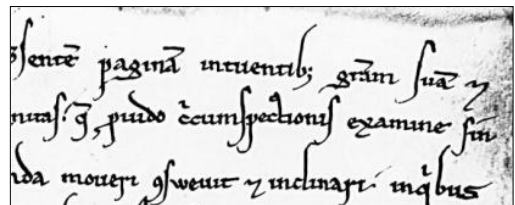 sentē paginā intuentib; grām suā ⁊
nitas. q̄, puido c̄cumspectionis examine sūi
nda moueri ꝯsweuit ⁊ inclinari. inqͥbus